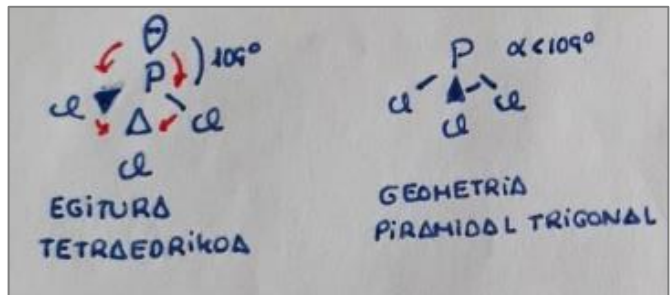 P
109°
Cl
Cl
Cl
EGITURA
TETRAEDRIKOA
P
α<109°
Cl
Cl
Cl
GEOMETRIA
PIRAMIDAL TRIGONAL